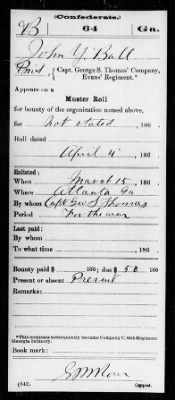 (Confederate.)
B 64 Ga.
John Y. Ball
Pvt., { Capt. George S. Thomas' Company,
Evans' Regiment.*
Appears on a
Muster Roll
for bounty of the organization named above,
for Not stated, 186 .
Roll dated
April 4, 186 .
Enlisted:
When March 15, 186 .
Where Atlanta Ga
By whom Capt Geo S. Thomas
Period For the war
Last paid:
By whom
To what time , 186 .
Bounty paid $ 100; due $ 50 100
Present or absent Present
Remarks:
*This company subsequently became Company
Georgia Infantry.
Book mark:
(642)
Copyist.